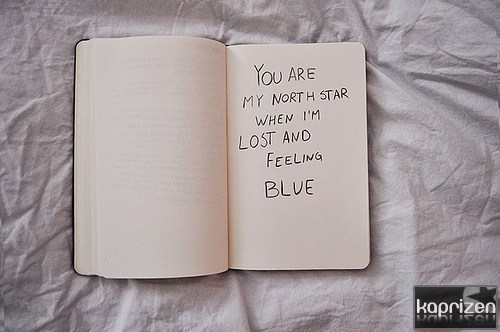 YOU ARE
MY NORTH STAR
WHEN I'M
LOST AND
FEELING
BLUE
kaprizen